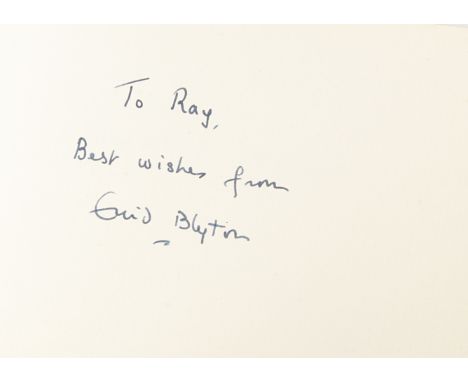 To Ray,
Best wishes from
Enid Blyton